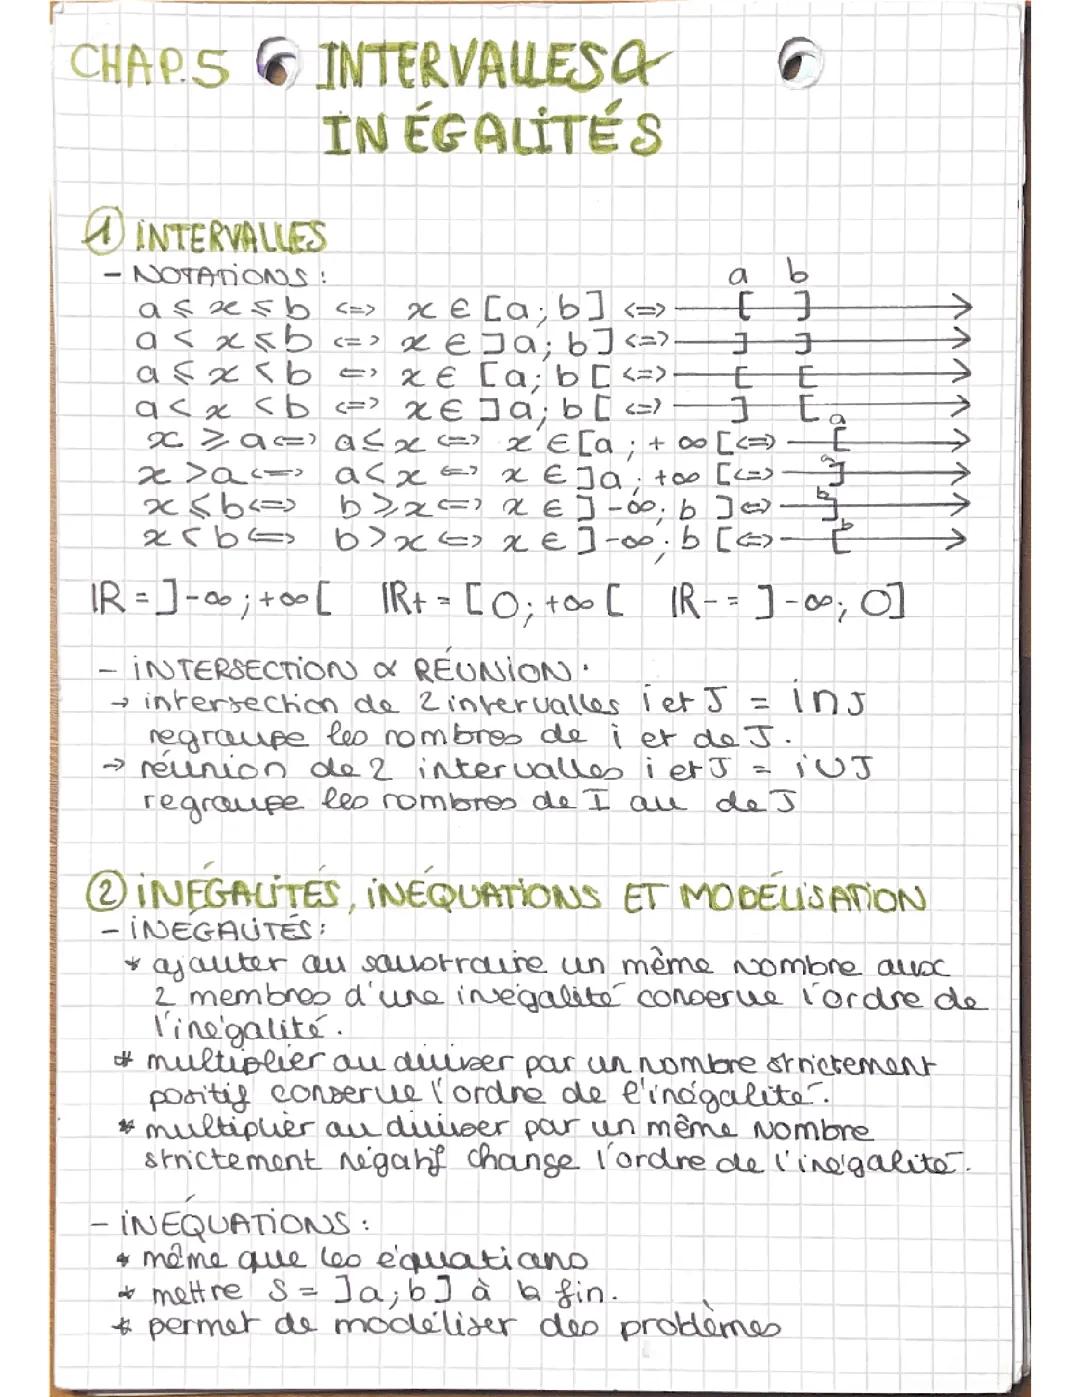 CHAP.5 INTERVALLES &
INÉGALITÉS
① INTERVALLES
- NOTATIONS :
a b
a ⩽ x ⩽ b <=> x ∈ [a; b] <=> [ ]
a < x ⩽ b <=> x ∈ ]a; b] <=> ] ]
a ⩽ x < b <=> x ∈ [a; b[ <=> [ [
a < x < b <=> x ∈ ]a; b[ <=> ] [
x ⩾ a <=> a ⩽ x <=> x ∈ [a ; + ∞ [ <=> [ a
x > a <=> a < x <=> x ∈ ]a ; +∞ [ <=> ] a
x ⩽ b <=> b ⩾ x <=> x ∈ ] -∞; b ] <=> ] b
x < b <=> b > x <=> x ∈ ] -∞; b [ <=> [ b
IR = ]-∞ ; +∞[ IR+ = [0; +∞ [ IR- = ] -∞; 0]
- INTERSECTION & RÉUNION :
→ intersection de 2 intervalles i et J = i∩J
regroupe les nombres de i et de J.
→ réunion de 2 intervalles i et J = i∪J
regroupe les nombres de I ou de J
② INÉGALITÉS, INÉQUATIONS ET MODÉLISATION
- INÉGALITÉS :
* ajouter ou soustraire un même nombre aux
2 membres d'une inégalité conserve l'ordre de
l'inégalité.
* multiplier ou diviser par un nombre strictement
positif conserve l'ordre de l'inégalité.
* multiplier ou diviser par un même nombre
strictement négatif change l'ordre de l'inégalité.
- INÉQUATIONS :
* même que les équations
* mettre S = ]a; b] à la fin.
* permet de modéliser des problèmes